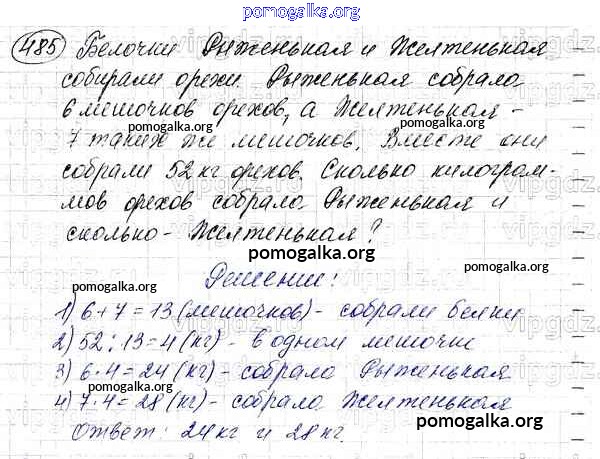 pomogalka.org
485 Белочки Рыженькая и Желтенькая
собирали орехи. Рыженькая собрала
6 мешочков орехов, а Желтенькая -
pomogalka.org
7 таких же мешочков. Вместе они
собрали 52 кг орехов. Сколько килограм-
pomogalka.org
мов орехов собрала Рыженькая и
сколько - Желтенькая?
pomogalka.org
pomogalka.org
Решение:
1) 6+7=13 (мешочков) - собрали белки
pomogalka.org
2) 52:13=4 (кг) - в одном мешочке
3) 6·4=24 (кг) - собрала Рыженькая
pomogalka.org
4) 7·4=28 (кг) - собрала Желтенькая
pomogalka.org
Ответ: 24 кг и 28 кг.
vipgdz.com